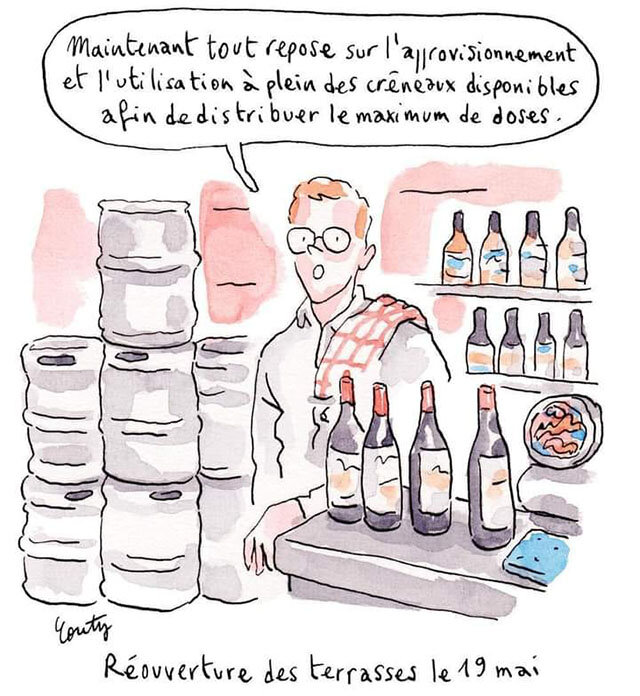 Maintenant tout repose sur l'approvisionnement
et l'utilisation à plein des crêneaux disponibles
afin de distribuer le maximum de doses.
Couty
Réouverture des terrasses le 19 mai